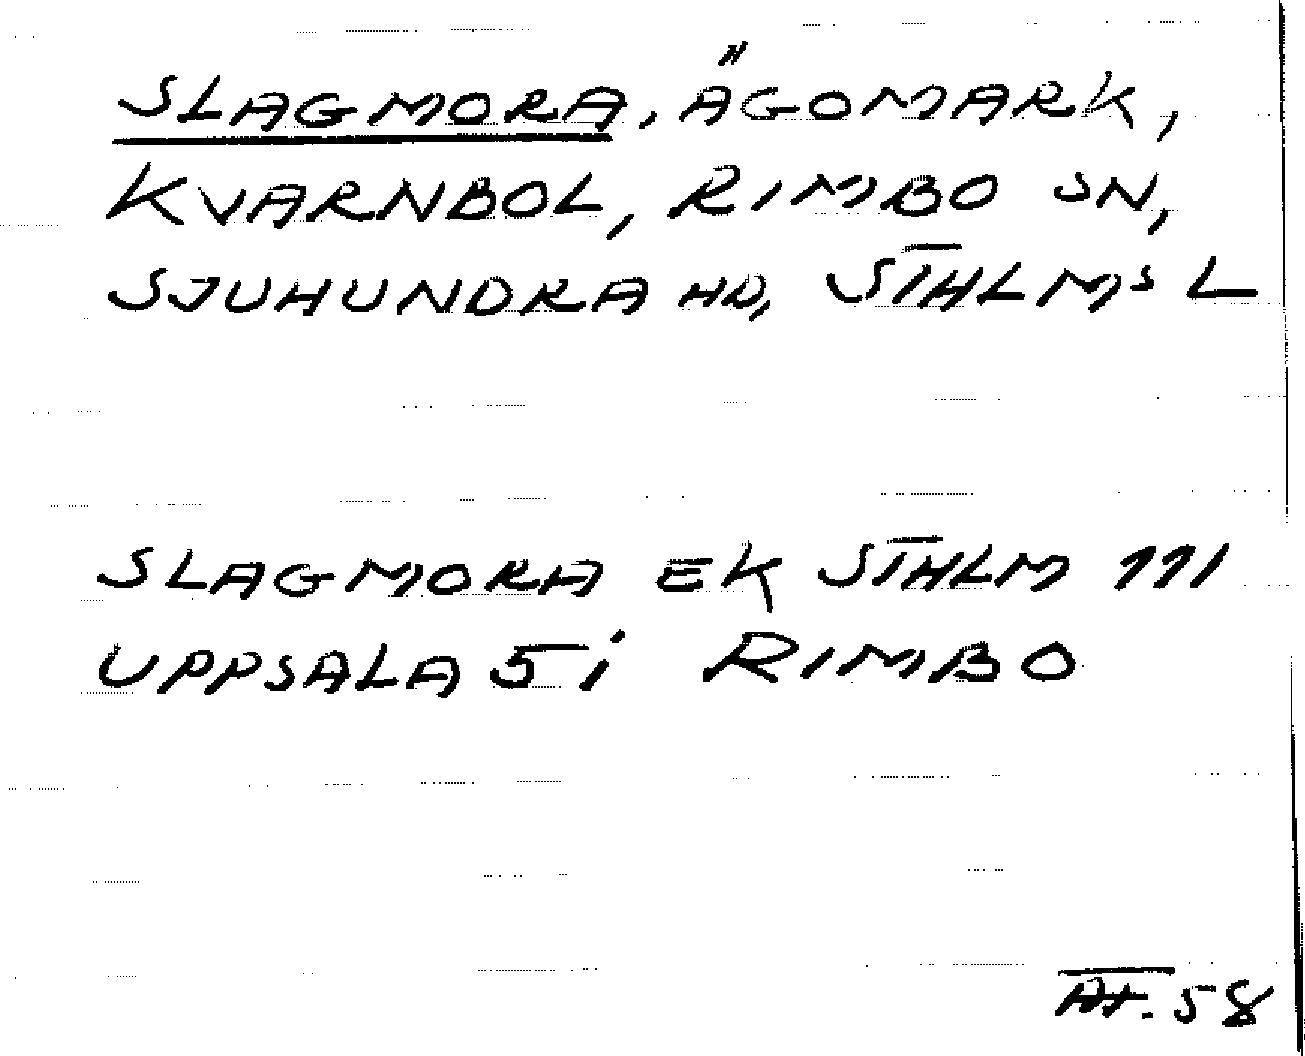 SLAGMORA, ÄGOMARK,
KVARNBOL, RIMBO SN,
SJUHUNDRA HD, STHLMS L
SLAGMORA EK STHLM 111
UPPSALA 5i RIMBO
58